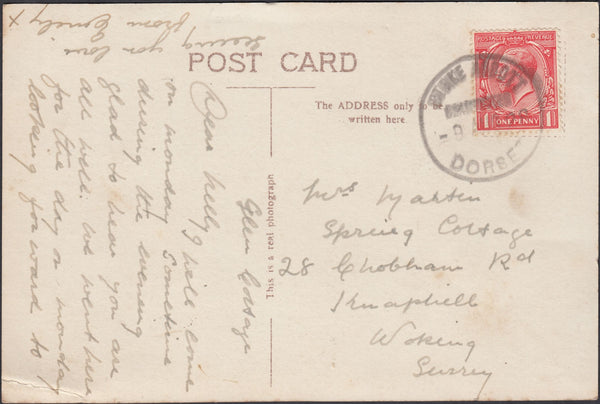 POST CARD
The ADDRESS only to be
written here
This is a real photograph
POSTAGE REVENUE
ONE PENNY
1
1
STOKE ABBOTT
DORSET
Glen Cottage
Dear Nelly I will come
on monday Sometime
during the evening
glad to hear you are
all well. we went here
for the day on monday
looking forward to
seeing you love
from Emily x
Mrs Marten
Spring Cottage
28 Chobham Rd
Knaphill
Woking
Surrey